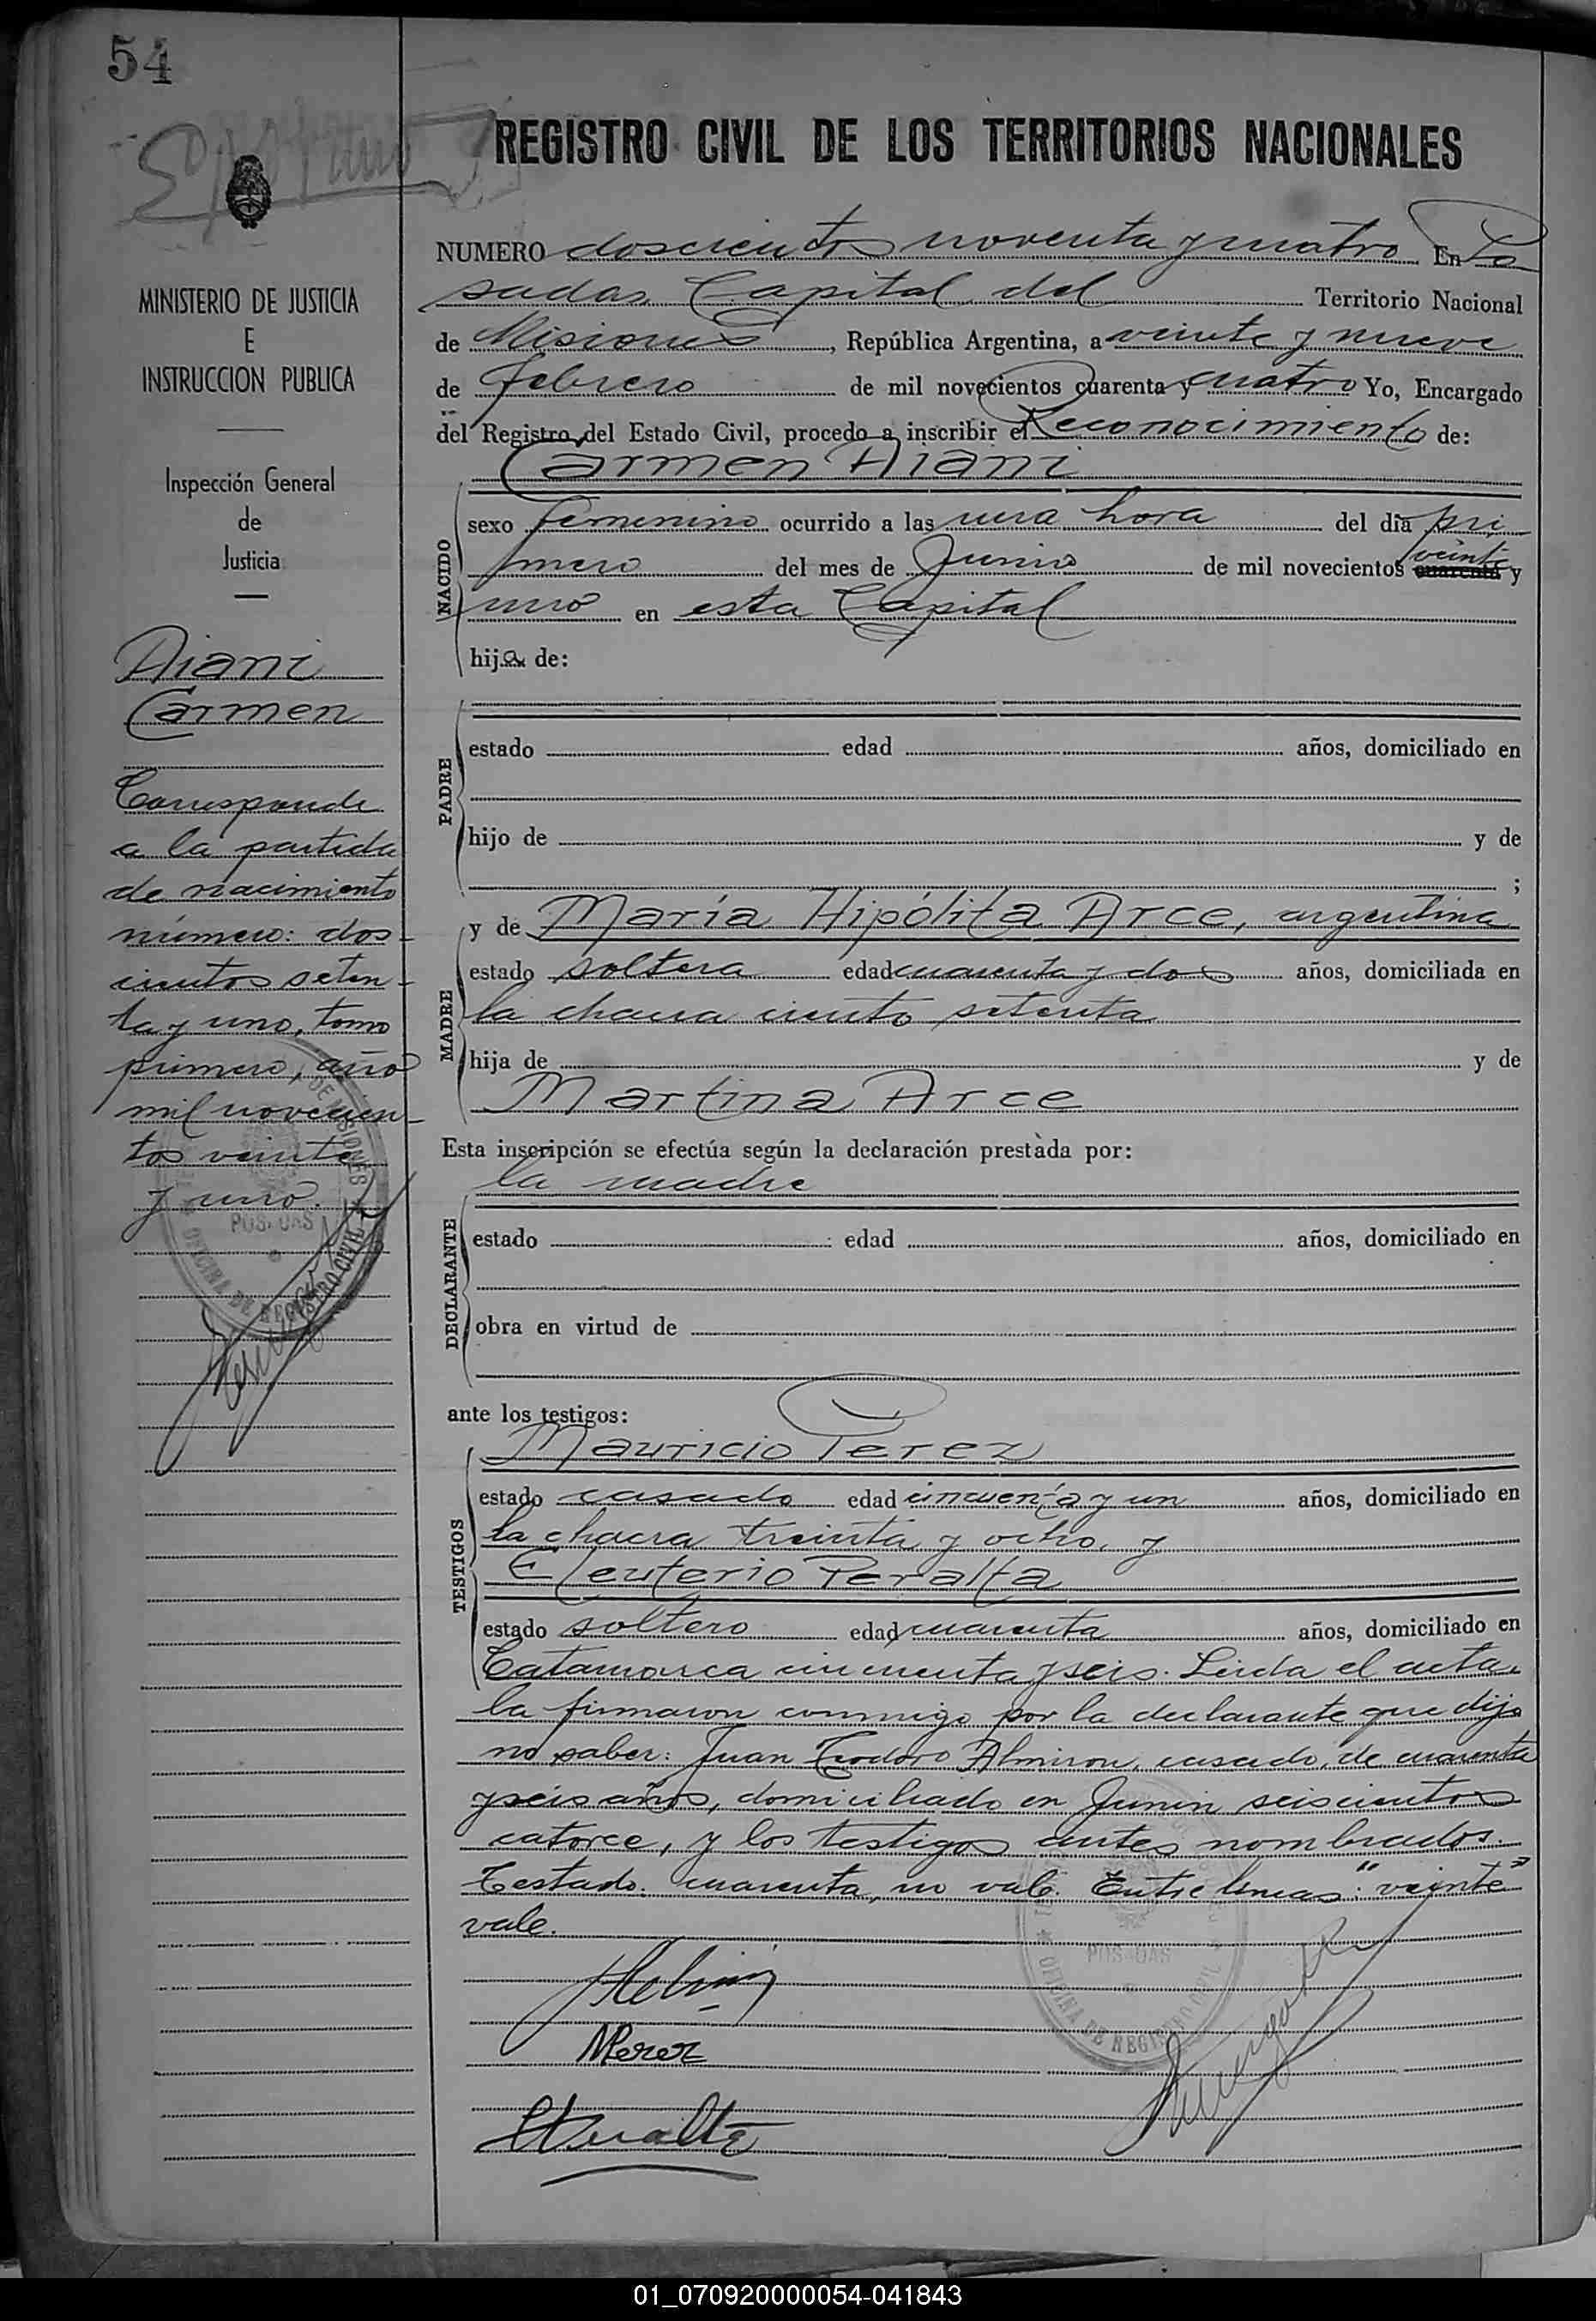 54
REGISTRO CIVIL DE LOS TERRITORIOS NACIONALES
MINISTERIO DE JUSTICIA
E
INSTRUCCION PUBLICA
Inspección General
de
Justicia
Aiani
Carmen
Corresponde
a la partida
de nacimiento
número: dos-
cientos seten-
ta y uno, tomo
primero, año
mil novecien-
tos veinte
y uno.
NUMERO doscientos noventa y cuatro En Po
sadas, Capital del Territorio Nacional
de Misiones, República Argentina, a veinte y nueve
de febrero de mil novecientos cuarenta y cuatro Yo, Encargado
del Registro del Estado Civil, procedo a inscribir el Reconocimiento de:
Carmen Aiani
NACIDO
sexo femenino ocurrido a las una hora del día pri
mero del mes de Junio de mil novecientos cuarenta veinte y
uno en esta Capital
hija de:
PADRE
estado edad años, domiciliado en
hijo de y de
;
MADRE
y de María Hipólita Arce, argentina
estado soltera edad cuarenta y dos años, domiciliada en
la chacra ciento setenta
hija de y de
Martina Arce
Esta inscripción se efectúa según la declaración prestada por:
la madre
DECLARANTE
estado edad años, domiciliado en
obra en virtud de
ante los testigos:
TESTIGOS
Mauricio Perez
estado casado edad cincuenta y un años, domiciliado en
la chacra treinta y ocho, y
Eleuterio Peralta
estado soltero edad cuarenta años, domiciliado en
Catamarca cincuenta y seis. Leida el acta,
la firmaron conmigo por la declarante que dijo
no saber: Juan Teodoro Almiron, casado, de cuarenta
y seis años, domiciliado en Junin seiscientos
catorce, y los testigos antes nombrados.
Testado: cuarenta, no vale. Entre lineas: "veinte"
vale.
MPerez
EPeralta
POSADAS
OFICINA DE REGISTRO CIVIL
01_070920000054-041843